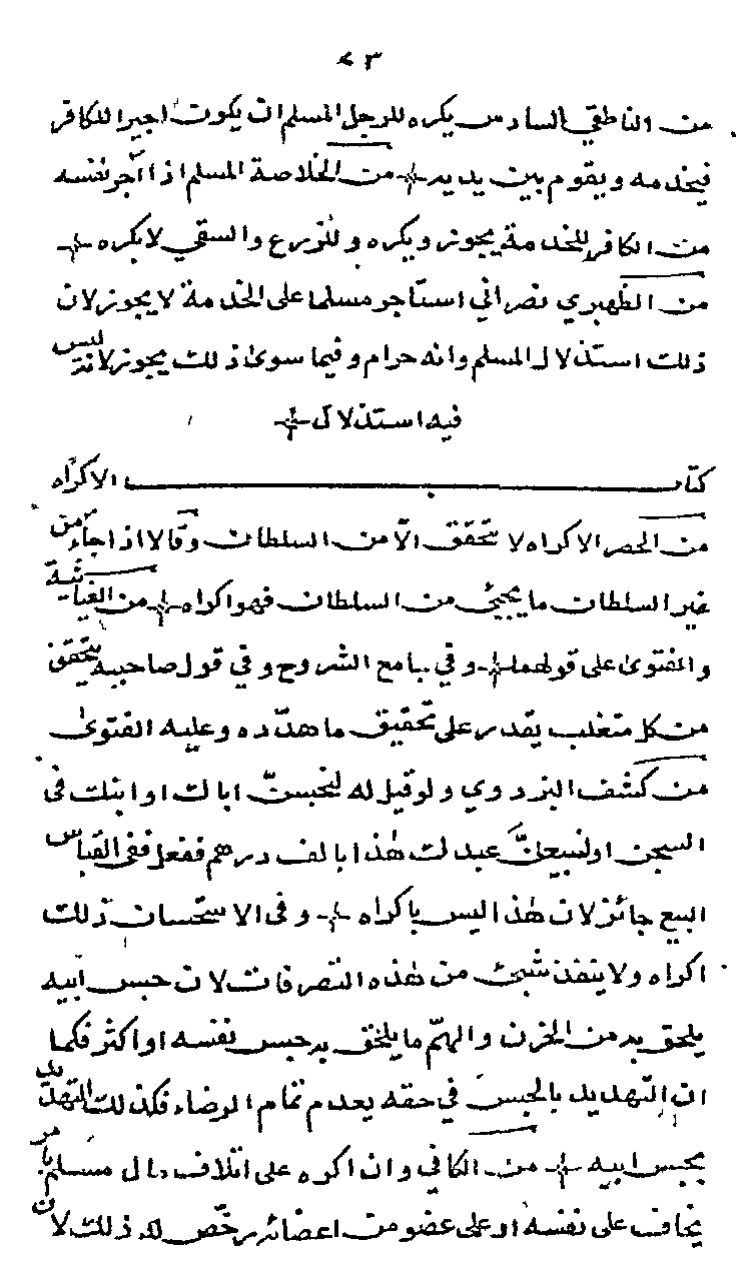 ٢٣
من الناطقي السادس يكره للرجل المسلم ان يكون اجيرا للكافر
فيخدمه ويقوم بين يديه من الخلاصة المسلم اذا آجر نفسه
من الكافر للخدمة يجوز ويكره وللزرع والسقي لا يكره
من الظهيري نصراني استأجر مسلما على الخدمة لا يجوز لان
ذلك استذلال المسلم وانه حرام وفيما سوى ذلك يجوز لانه ليس
فيه استذلال
كتاب الاكراه
من الحصر الاكراه لا يتحقق الّا من السلطان وقالا اذا جاء من
غير السلطان ما يجيئ من السلطان فهو اكراه من الغياثية
والفتوى على قولهما وفي جامع الشروح وفي قول صاحبيه يتحقق
من كل متغلب يقدر على تحقيق ما هدّده وعليه الفتوى
من كشف البزدوي ولو قيل له لنحبسنّ اباك او ابنك فى
السجن او لتبيعنّ عبدك هذا بالف درهم ففعل ففى القياس
البيع جائز لان هذا ليس باكراه وفى الاستحسان ذلك
اكراه ولا ينفذ شيئ من هذه التصرفات لان حبس ابيه
يلحق به من الحزن والهمّ ما يلحق به حبس نفسه او اكثر فكما
ان التهديد بالحبس في حقه يعدم تمام الرضاء فكذلك التهديد
بحبس ابيه من الكافي وان اكره على اتلاف مال مسلم بامر
يخاف على نفسه او على عضو من اعضائه رخّص له ذلك لان